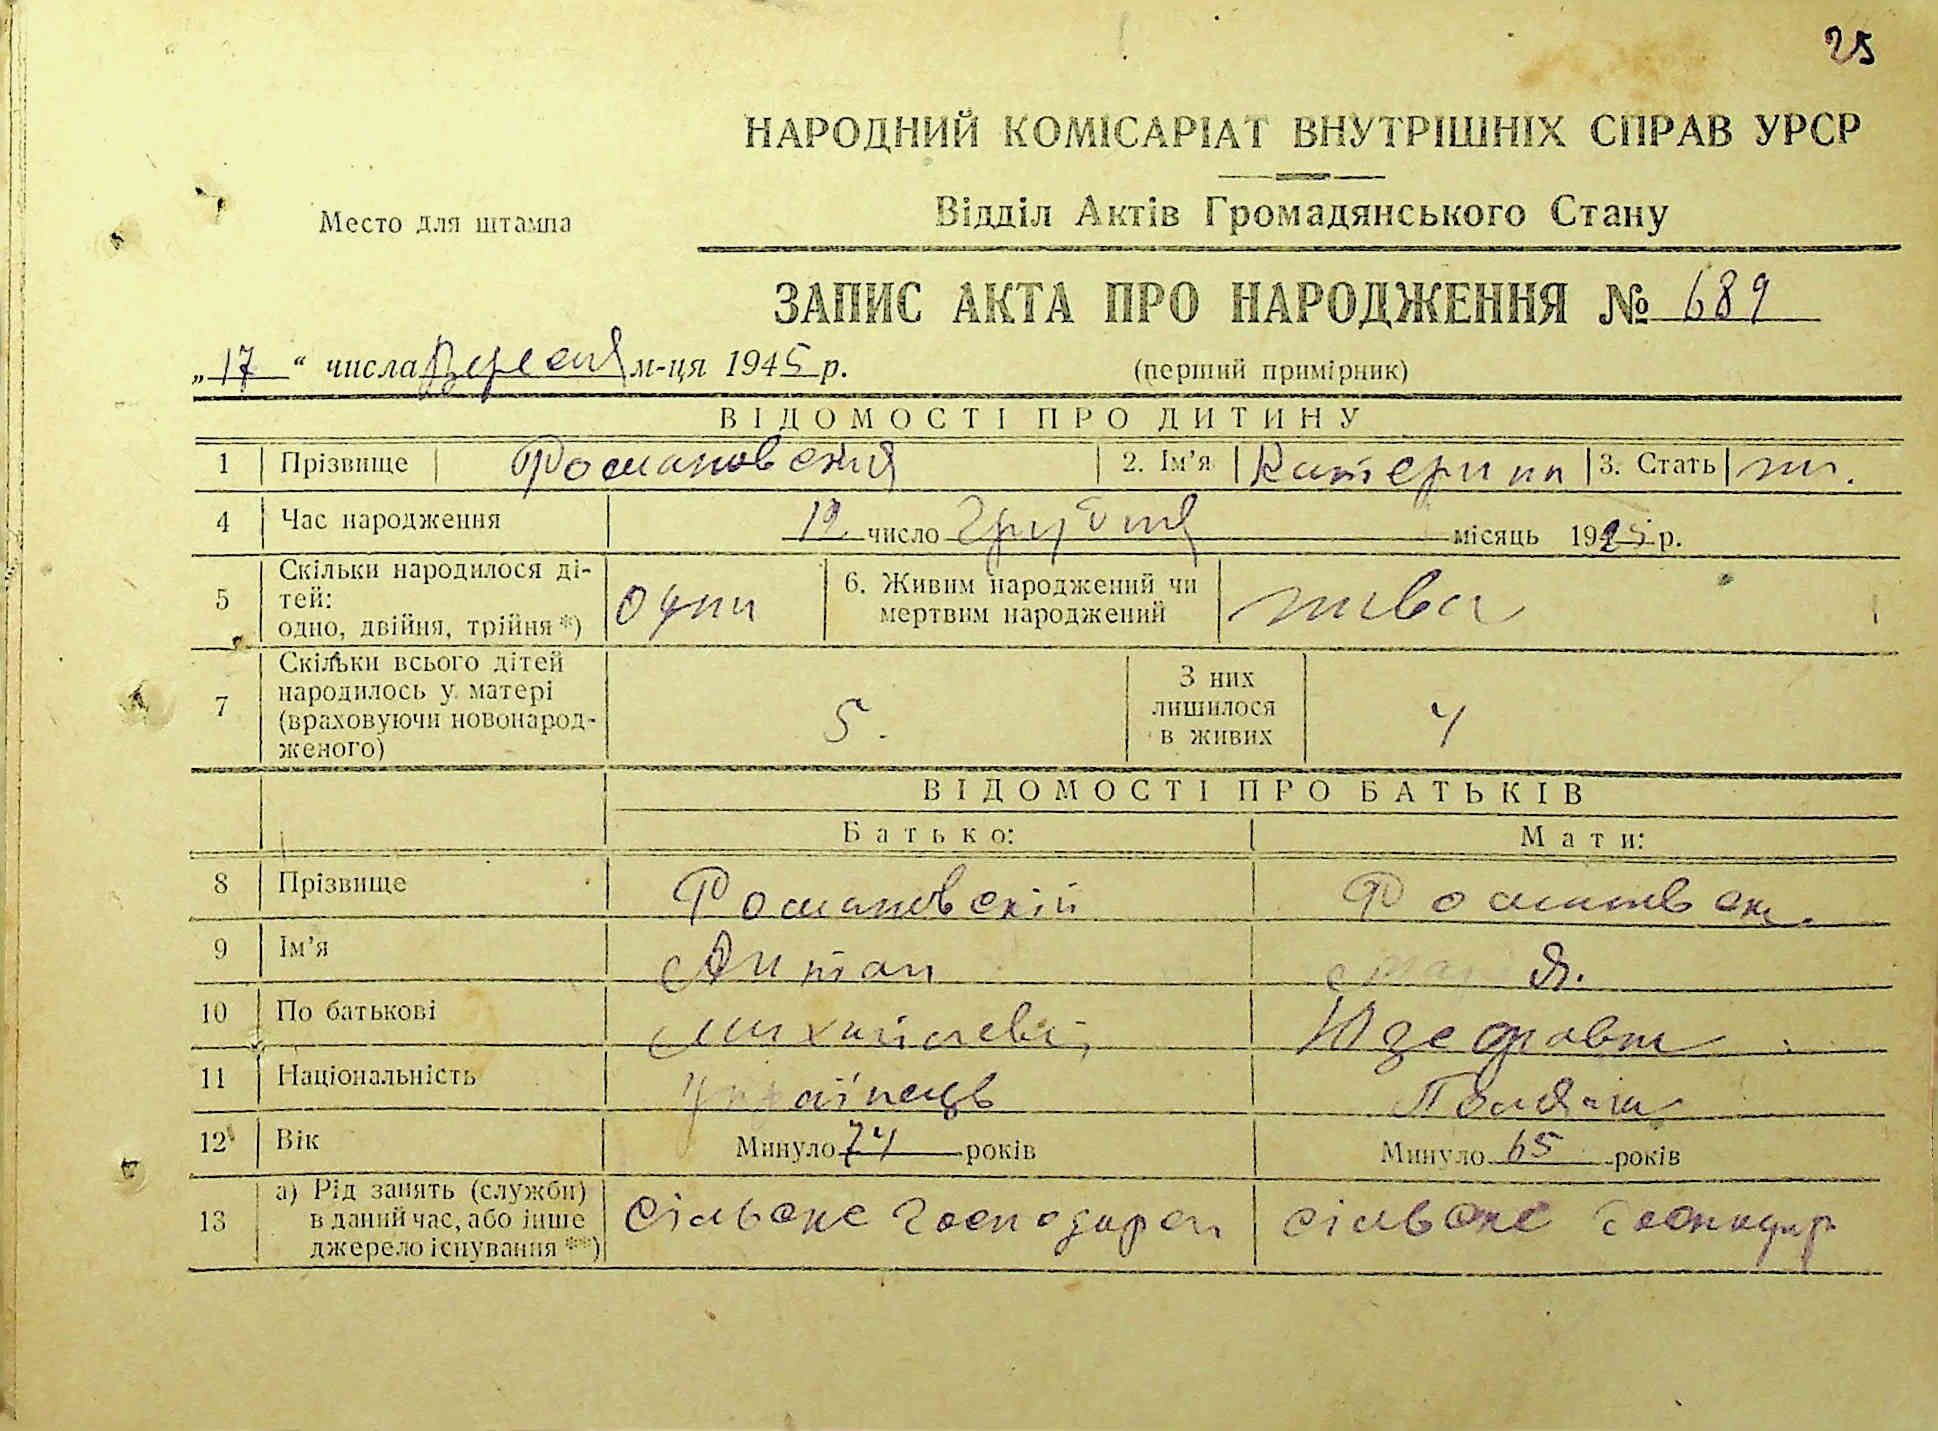 25
НАРОДНИЙ КОМІСАРІАТ ВНУТРІШНІХ СПРАВ УРСР
Место для штампа
Відділ Актів Громадянського Стану
ЗАПИС АКТА ПРО НАРОДЖЕННЯ № 689
„17“ числа Вересня м-ця 1945 р. (перший примірник)
ВІДОМОСТІ ПРО ДИТИНУ
1 Прізвище Романовская 2. Ім’я Катерина 3. Стать ж.
4 Час народження 19 число Грудня місяць 1925 р.
5 Скільки народилося ді-
тей:
одно, двійня, трійня *) одни
6. Живим народжений чи
мертвим народжений жива
7 Скільки всього дітей
народилось у матері
(враховуючи новонарод-
женого) 5.
З них
лишилося
в живих 4
ВІДОМОСТІ ПРО БАТЬКІВ
Батько: Мати:
8 Прізвище Романовскій Романовск.
9 Ім’я Антон Марія.
10 По батькові Михайлеві Юзефовна
11 Національність Українець Полячка
12 Вік Минуло 74 років Минуло 65 років
13 а) Рід занять (служби)
в даний час, або інше
джерело існування **)
сільське господарсп сільске господар